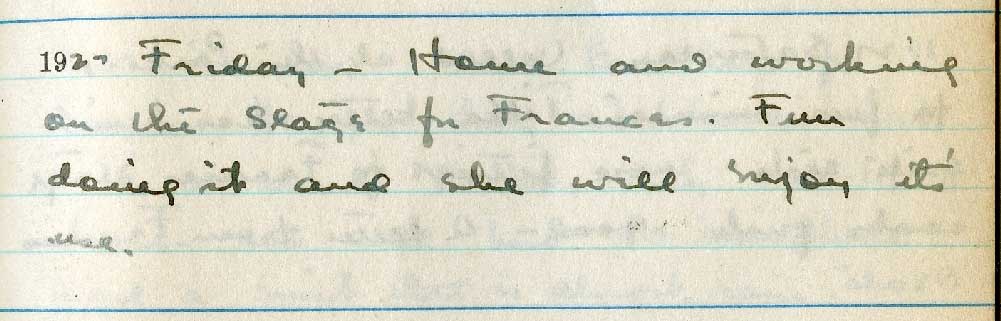 19 Friday - Home and working
on the Stage for Frances. Fun
doing it and she will enjoy it's
use.